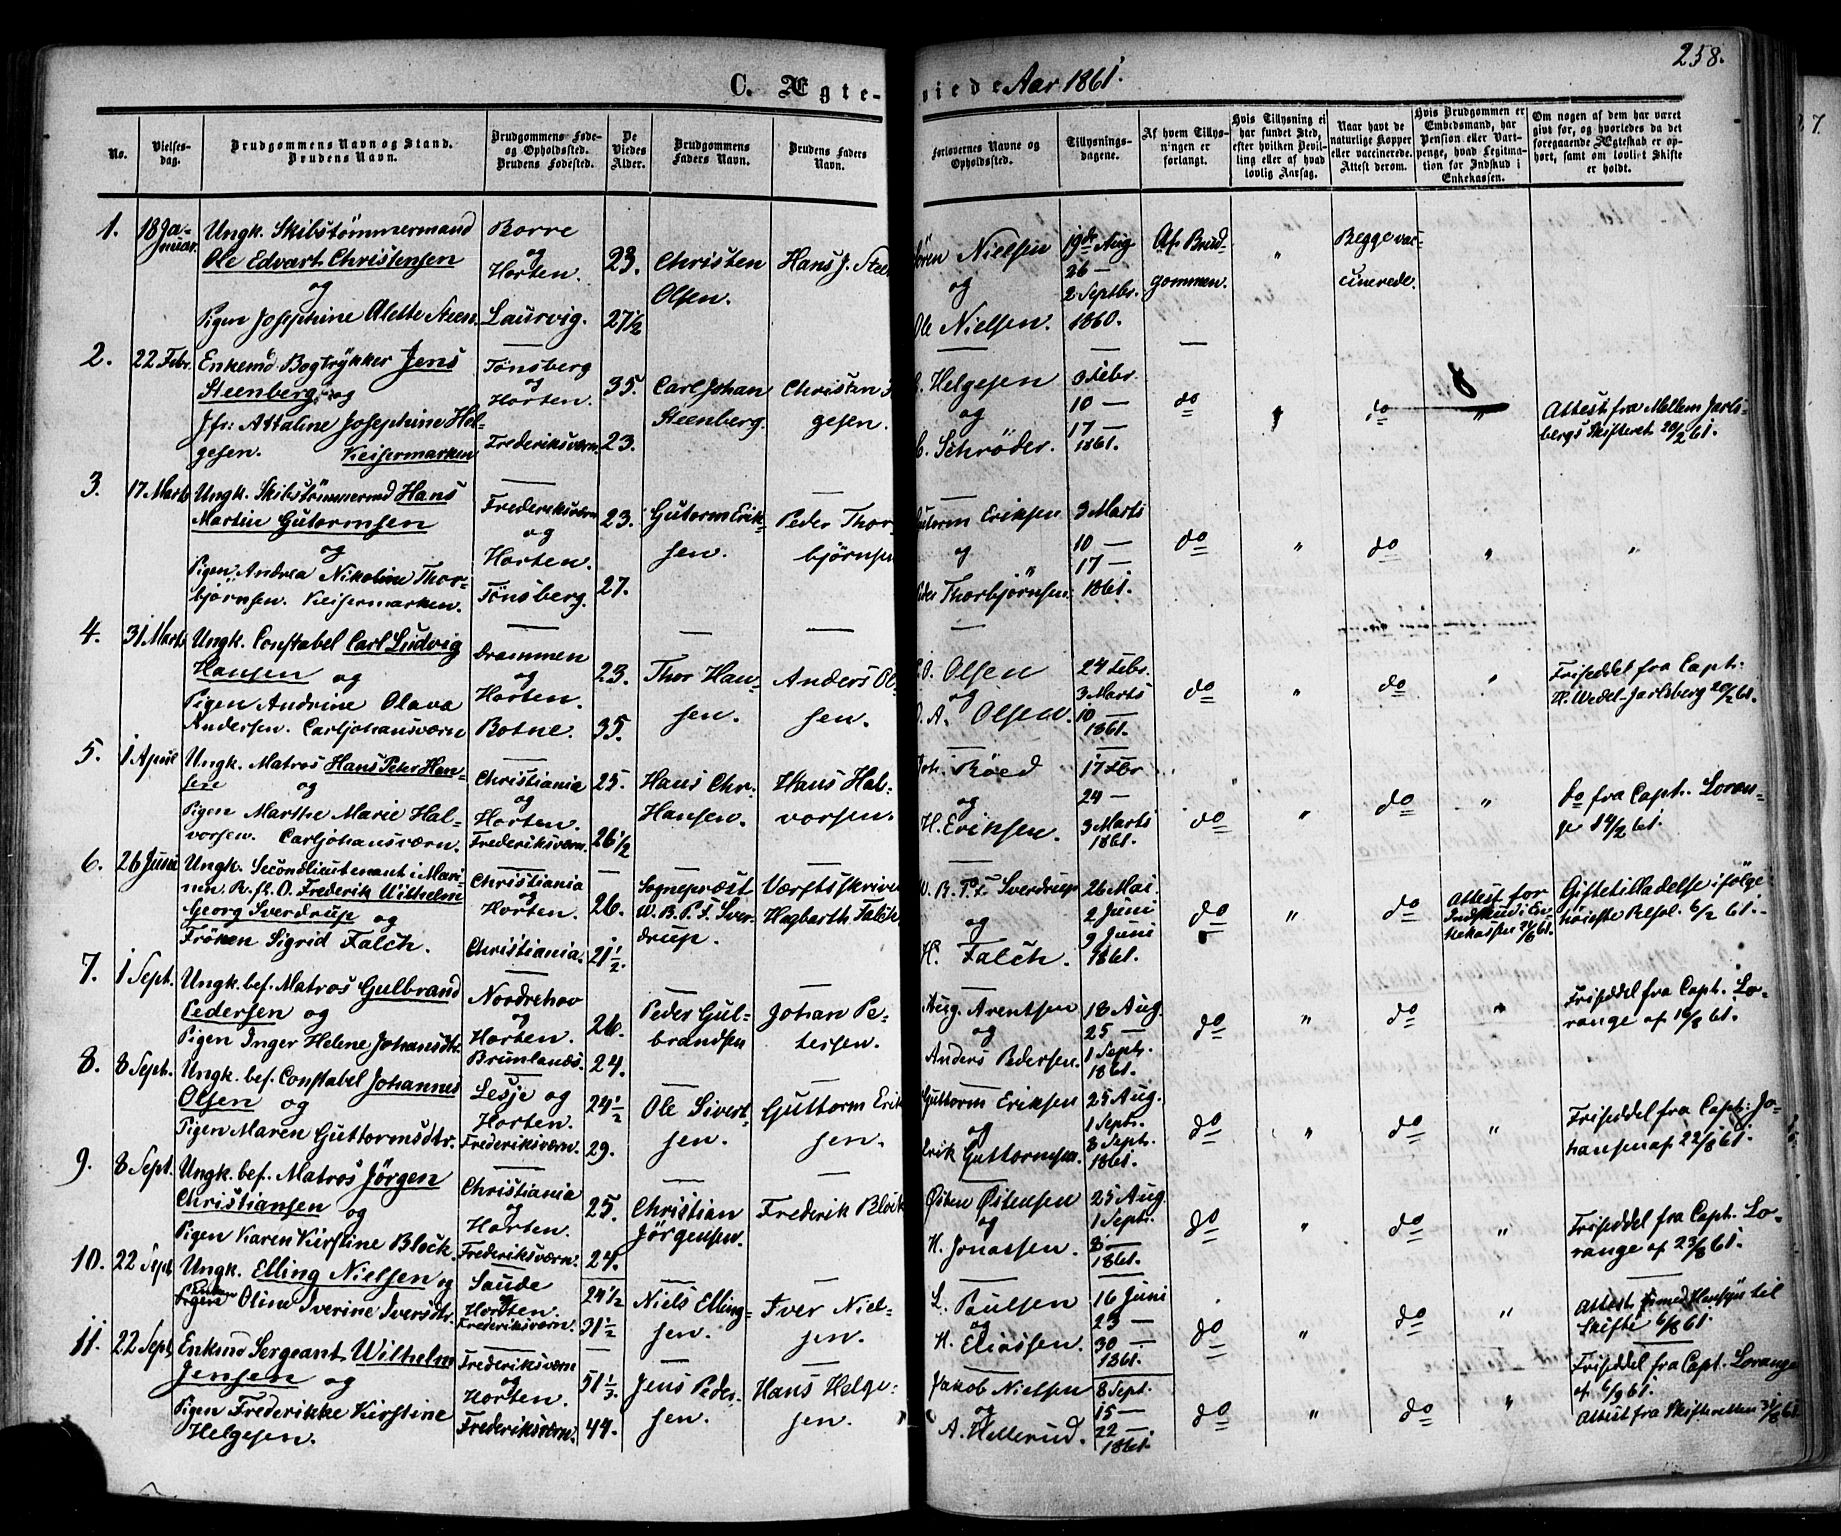 258.
C. Ægteviede Aar 1861.
No.
Vielses-dag.
Brudgommens Navn og Stand. Brudens Navn.
Brudgommens Føde- og Opholdssted. Brudens Fødested.
De Viedes Alder.
Brudgommens Faders Navn.
Brudens Faders Navn.
Forlovernes Navne og Opholdssted.
Tillysnings-dagene.
Af hvem Tillysningen er forlangt.
Hvis Tillysning ei har fundet Sted, efter hvilken Bevilling eller af hvad lovlig Aarsag.
Naar havt de naturlige Kopper eller vaccinerede. Attest derom.
Hvis Brudgommen er Embedsmand, har Pension eller Vartpenge, hvad Legitmation for Indskud i Enkekassen.
Om nogen af dem har været givt før, og hvorledes da det foregaaende Ægteskab er ophørt, samt om lovligt Skifte er holdt.
1. 18 Januar.
Ungk. Skibstømmermand
Ole Edvart Christensen
og
Pigen Josephine Alette Steen.
Borre
og
Horten.
Laurvig.
23.
27½
Christen
Olsen.
Hans J. Steen
Søren Nielsen
og
Ole Nielsen.
19de Aug
26 —
2 Septbr.
1860.
Af Brud-
gommen.
"
Begge vac-
cinerede.
2. 22 Febr.
Enkemd Bogtrykker Jens
Steenberg og
Jfr: Attaline Josephine Hel-
gesen. Keisermarken
Tønsberg
og
Horten.
Frederiksværn
35.
23.
Carl Johan
Steenberg.
Christen
gesen.
Helgesen
og
C. Schrøder.
3 Febr.
10 —
17 —
1861.
do
"
do
8
"
Attest fra Mellem Jarls-
bergs Skifteret 20/2 61.
3. 17 Marts
Ungk. Skibstømmermd Hans
Martin Gutormsen
og
Pigen Andrea Nikoline Thor-
bjørnsen. Keisermarken.
Frederiksværn
og
Horten.
Tønsberg.
23.
27.
Gutorm Erik-
sen.
Peder Thor-
bjørnsen
Gutorm Eriksen
og
Peder Thorbjørnsen.
3 Marts
10 —
17 —
1861.
do
"
do
"
"
4. 31 Marts
Ungk. Constabel Carl Ludvig
Hansen og
Pigen Andrine Olava
Andersen. Carljohansværn
Drammen
og
Horten.
Botne.
23.
35.
Thor Han-
sen.
Anders Ol-
sen.
Olsen
og
O. A. Olsen.
24 Febr.
3 Marts
10 —
1861.
do
"
do
"
Friseddel fra Capt:
H. Wedel Jarlsberg 20/2 61.
5. 1 April
Ungk. Matros Hans Peter Han-
sen og
Pigen Marthe Marie Hal-
vorsen. Carljohansværn.
Christiania
og
Horten.
Frederiksværn.
25.
26½
Hans Chr.
Hansen.
Hans Hal-
vorsen.
Joh. Røed
og
H. Eriksen.
17 Fbr
24 —
3 Marts
1861.
do
"
do
"
do fra Capt. Loran-
ge 14/2 61.
6. 26 Juni
Ungk. Secondlieutenant i Mari-
nen R. st. O. Frederik Wilhelm
Georg Sverdrup og
Frøken Sigrid Falch.
Christiania
og
Horten.
Christiania.
26.
21½.
Sognepræst
W. B. P. F. Sver-
drup.
Værftsskriver
Hagbarth Falch
W. B. P. F. Sverdrup
og
H. Falch.
26 Mai
2 Juni
9 Juni
1861.
do
"
do
Attest for
Indskud i En-
kekassen 21/6 61.
Giftetilladelse ifølge
høieste Resol. 6/2 61.
7. 1 Sept.
Ungk. bef. Matros Gulbrand
Pedersen og
Pigen Inger Helene Johansdtr.
Nordrehov
og
Horten.
Brunlanæs.
26.
24.
Peder Gul-
brandsen
Johan Pe-
tersen.
Aug. Arentsen
og
Anders Pedersen.
18 Aug.
25 —
1 Septr.
1861.
do
"
do
"
Friseddel fra Capt. Lo-
range af 16/8 61.
8. 8 Sept.
Ungk. bef. Constabel Johannes
Olsen og
Pigen Maren Guttormsdtr.
Lesje og
Horten.
Frederiksværn.
24½
29.
Ole Sivert-
sen.
Guttorm Erik
sen.
Guttorm Eriksen
og
Erik Guttormsen.
25 Aug.
1 Septr.
8 Septr.
1861.
do
"
do
"
Friseddel fra Capt: Jo-
hansen af 22/8 61.
9. 8 Sept.
Ungk. bef. Matros Jørgen
Christiansen og
Pigen Karen Kirstine Block.
Christiania
og
Horten.
Frederiksværn.
25.
24.
Christian
Jørgensen.
Frederik Block
Østen Østensen
og
H. Jonassen.
25 Aug.
1 Septr.
8 —
1861.
do
"
do
"
Friseddel fra Capt. Lo-
range af 23/8 61.
10. 22 Sept
Ungk. Elling Nielsen og
Enken Oline Iverine Iversdtr.
Saude
og
Horten.
Frederiksværn.
24½
31½
Niels Elling-
sen.
Iver Niel-
sen.
L. Paulsen
og
H. Eliassen.
16 Juni
23 —
30 —
1861.
do
"
do
"
Attest med Hensyn til
Skifte 6/8 61.
11. 22 Sept.
Enkmd Sergeant Wilhelm
Jensen og
Pigen Frederikke Kirstine
Helgesen.
Frederiksværn
og
Horten.
Frederiksværn.
51⅓
44.
Jens Peder-
sen.
Hans Helge-
sen.
Jakob Nielsen
og
A. Hellerud.
8 Sept.
15 —
22 —
1861.
do
"
do
"
Friseddel fra Capt. Lorange
af 6/9 61.
Attest fra Skifteretten 31/8 61.